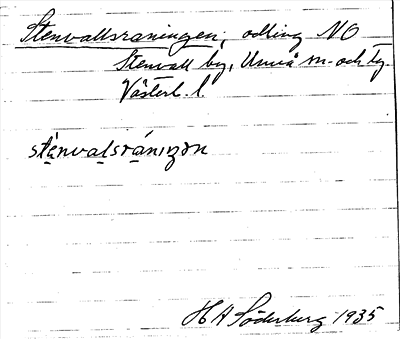 Stenvallsraningen, odling NO
Stenvall by, Umeå m. och tg.
Västerb. l.
stènvalsrániŋən
H A Söderberg 1935